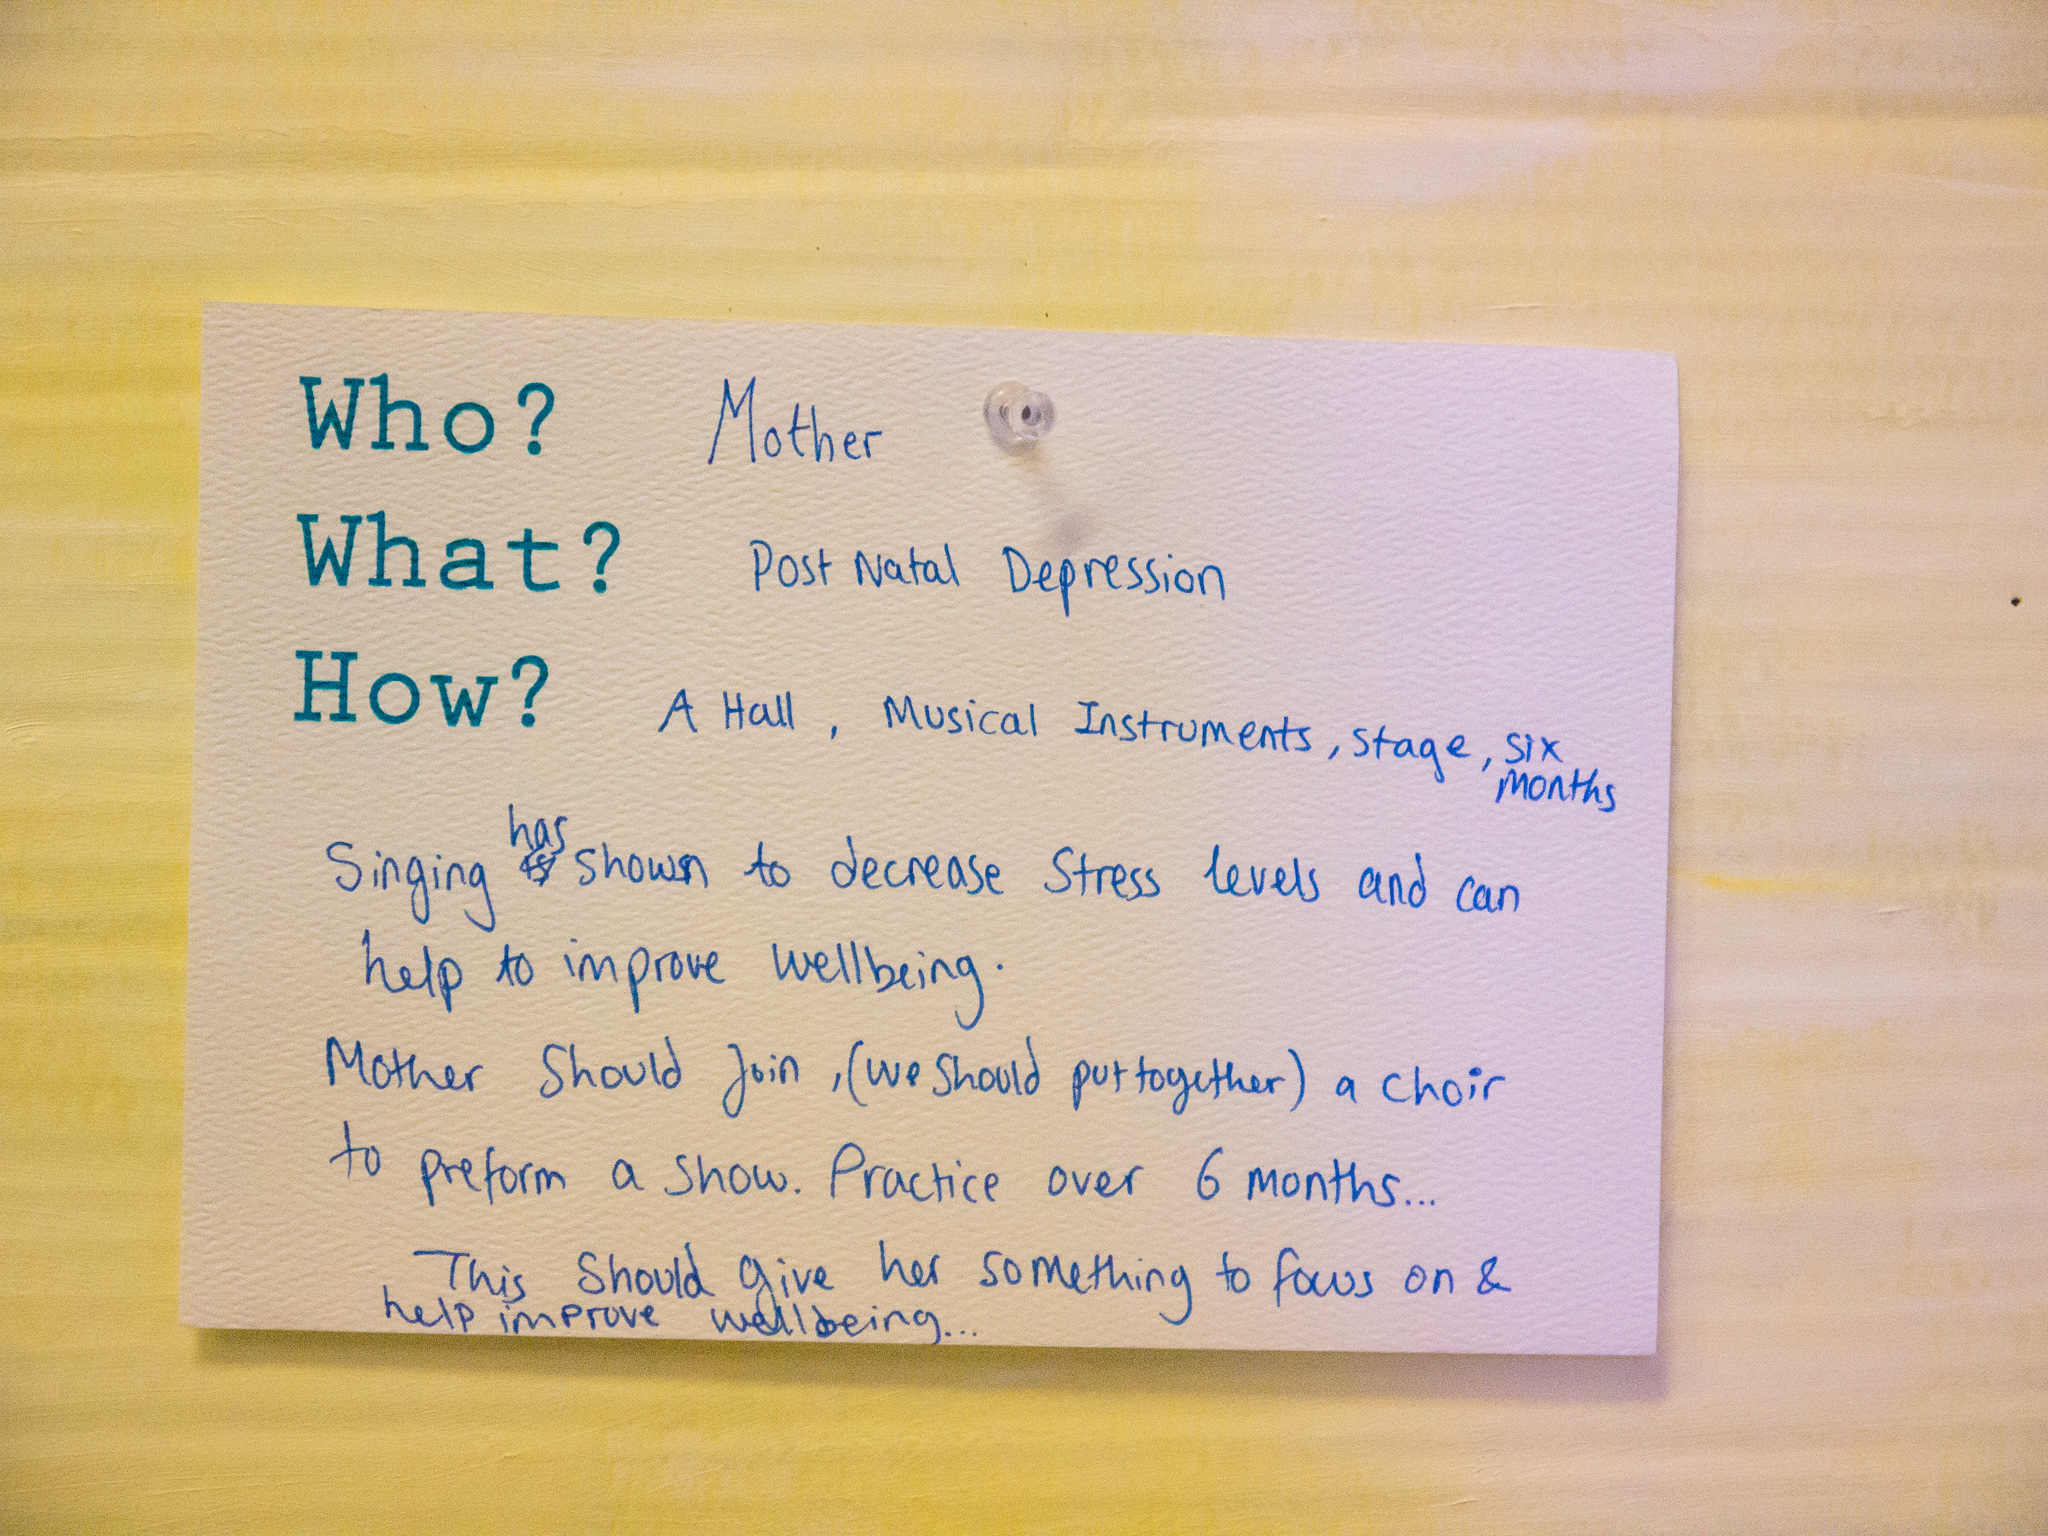 Who? Mother
What? Post Natal Depression
How? A Hall, Musical Instruments, stage, six
months
has
Singing shown to decrease stress levels and can
help to improve wellbeing.
Mother should join, (we should put together) a choir
to preform a show. Practice over 6 months...
This should give her something to focus on &
help improve wellbeing...